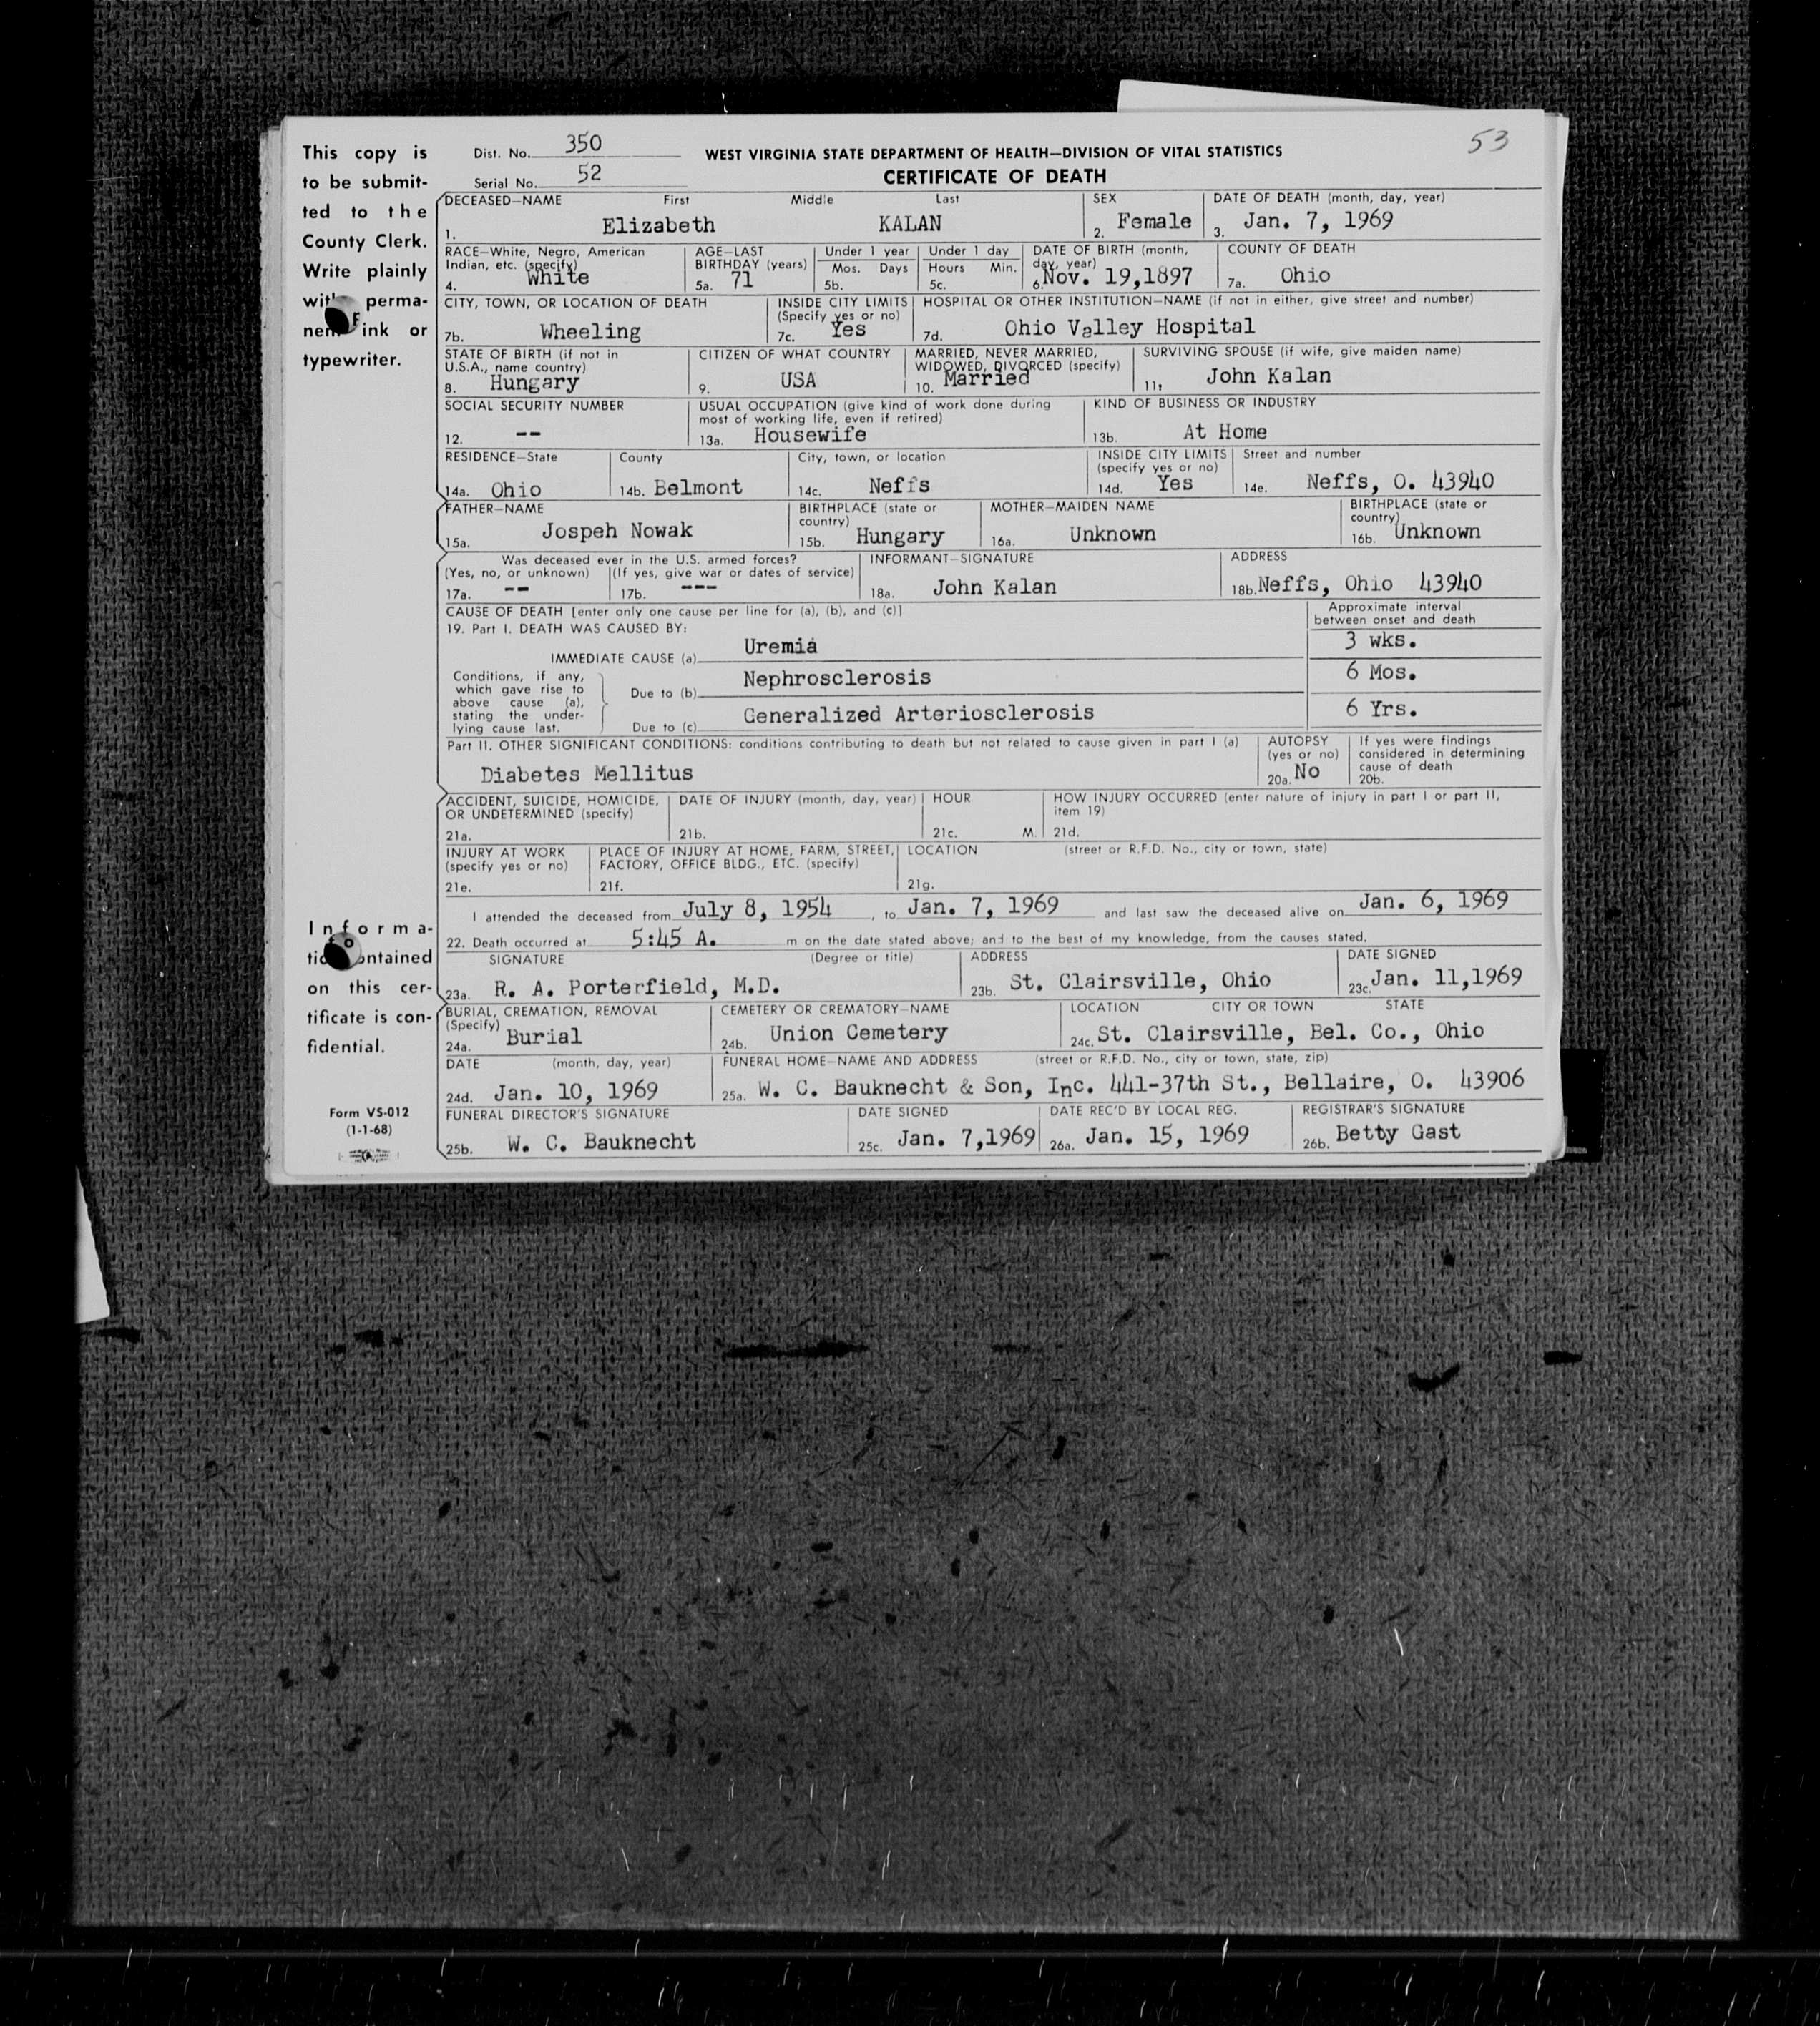 53
This copy is
to be submit-
ted to the
County Clerk.
Write plainly
with perma-
nent ink or
typewriter.
Dist. No. 350
WEST VIRGINIA STATE DEPARTMENT OF HEALTH—DIVISION OF VITAL STATISTICS
Serial No. 52
CERTIFICATE OF DEATH
DECEASED—NAME First Middle Last SEX DATE OF DEATH (month, day, year)
1. Elizabeth KALAN 2. Female 3. Jan. 7, 1969
RACE—White, Negro, American Indian, etc. (specify) AGE—LAST BIRTHDAY (years) Under 1 year Mos. Days Under 1 day Hours Min. DATE OF BIRTH (month, day, year) COUNTY OF DEATH
4. White 5a. 71 5b. 5c. 6. Nov. 19,1897 7a. Ohio
CITY, TOWN, OR LOCATION OF DEATH INSIDE CITY LIMITS (Specify yes or no) HOSPITAL OR OTHER INSTITUTION—NAME (if not in either, give street and number)
7b. Wheeling 7c. Yes 7d. Ohio Valley Hospital
STATE OF BIRTH (if not in U.S.A., name country) CITIZEN OF WHAT COUNTRY MARRIED, NEVER MARRIED, WIDOWED, DIVORCED (specify) SURVIVING SPOUSE (if wife, give maiden name)
8. Hungary 9. USA 10. Married 11. John Kalan
SOCIAL SECURITY NUMBER USUAL OCCUPATION (give kind of work done during most of working life, even if retired) KIND OF BUSINESS OR INDUSTRY
12. -- 13a. Housewife 13b. At Home
RESIDENCE—State County City, town, or location INSIDE CITY LIMITS (specify yes or no) Street and number
14a. Ohio 14b. Belmont 14c. Neffs 14d. Yes 14e. Neffs, O. 43940
FATHER—NAME BIRTHPLACE (state or country) MOTHER—MAIDEN NAME BIRTHPLACE (state or country)
15a. Jospeh Nowak 15b. Hungary 16a. Unknown 16b. Unknown
Was deceased ever in the U.S. armed forces? INFORMANT—SIGNATURE ADDRESS
(Yes, no, or unknown) (If yes, give war or dates of service)
17a. -- 17b. --- 18a. John Kalan 18b. Neffs, Ohio 43940
CAUSE OF DEATH [enter only one cause per line for (a), (b), and (c)] Approximate interval between onset and death
19. Part I. DEATH WAS CAUSED BY:
IMMEDIATE CAUSE (a) Uremia 3 wks.
Conditions, if any, which gave rise to above cause (a), stating the under-lying cause last.
Due to (b) Nephrosclerosis 6 Mos.
Due to (c) Generalized Arteriosclerosis 6 Yrs.
Part II. OTHER SIGNIFICANT CONDITIONS: conditions contributing to death but not related to cause given in part I (a) AUTOPSY (yes or no) If yes were findings considered in determining cause of death
Diabetes Mellitus 20a. No 20b.
ACCIDENT, SUICIDE, HOMICIDE, OR UNDETERMINED (specify) DATE OF INJURY (month, day, year) HOUR HOW INJURY OCCURRED (enter nature of injury in part I or part II, item 19)
21a. 21b. 21c. M. 21d.
INJURY AT WORK (specify yes or no) PLACE OF INJURY AT HOME, FARM, STREET, FACTORY, OFFICE BLDG., ETC. (specify) LOCATION (street or R.F.D. No., city or town, state)
21e. 21f. 21g.
I attended the deceased from July 8, 1954, to Jan. 7, 1969 and last saw the deceased alive on Jan. 6, 1969
22. Death occurred at 5:45 A. m on the date stated above; and to the best of my knowledge, from the causes stated.
SIGNATURE (Degree or title) ADDRESS DATE SIGNED
23a. R. A. Porterfield, M.D. 23b. St. Clairsville, Ohio 23c. Jan. 11,1969
BURIAL, CREMATION, REMOVAL (Specify) CEMETERY OR CREMATORY—NAME LOCATION CITY OR TOWN STATE
24a. Burial 24b. Union Cemetery 24c. St. Clairsville, Bel. Co., Ohio
DATE (month, day, year) FUNERAL HOME—NAME AND ADDRESS (street or R.F.D. No., city or town, state, zip)
24d. Jan. 10, 1969 25a. W. C. Bauknecht & Son, Inc. 441-37th St., Bellaire, O. 43906
FUNERAL DIRECTOR'S SIGNATURE DATE SIGNED DATE REC'D BY LOCAL REG. REGISTRAR'S SIGNATURE
25b. W. C. Bauknecht 25c. Jan. 7,1969 26a. Jan. 15, 1969 26b. Betty Gast
Informa-
tion contained
on this cer-
tificate is con-
fidential.
Form VS-012
(1-1-68)